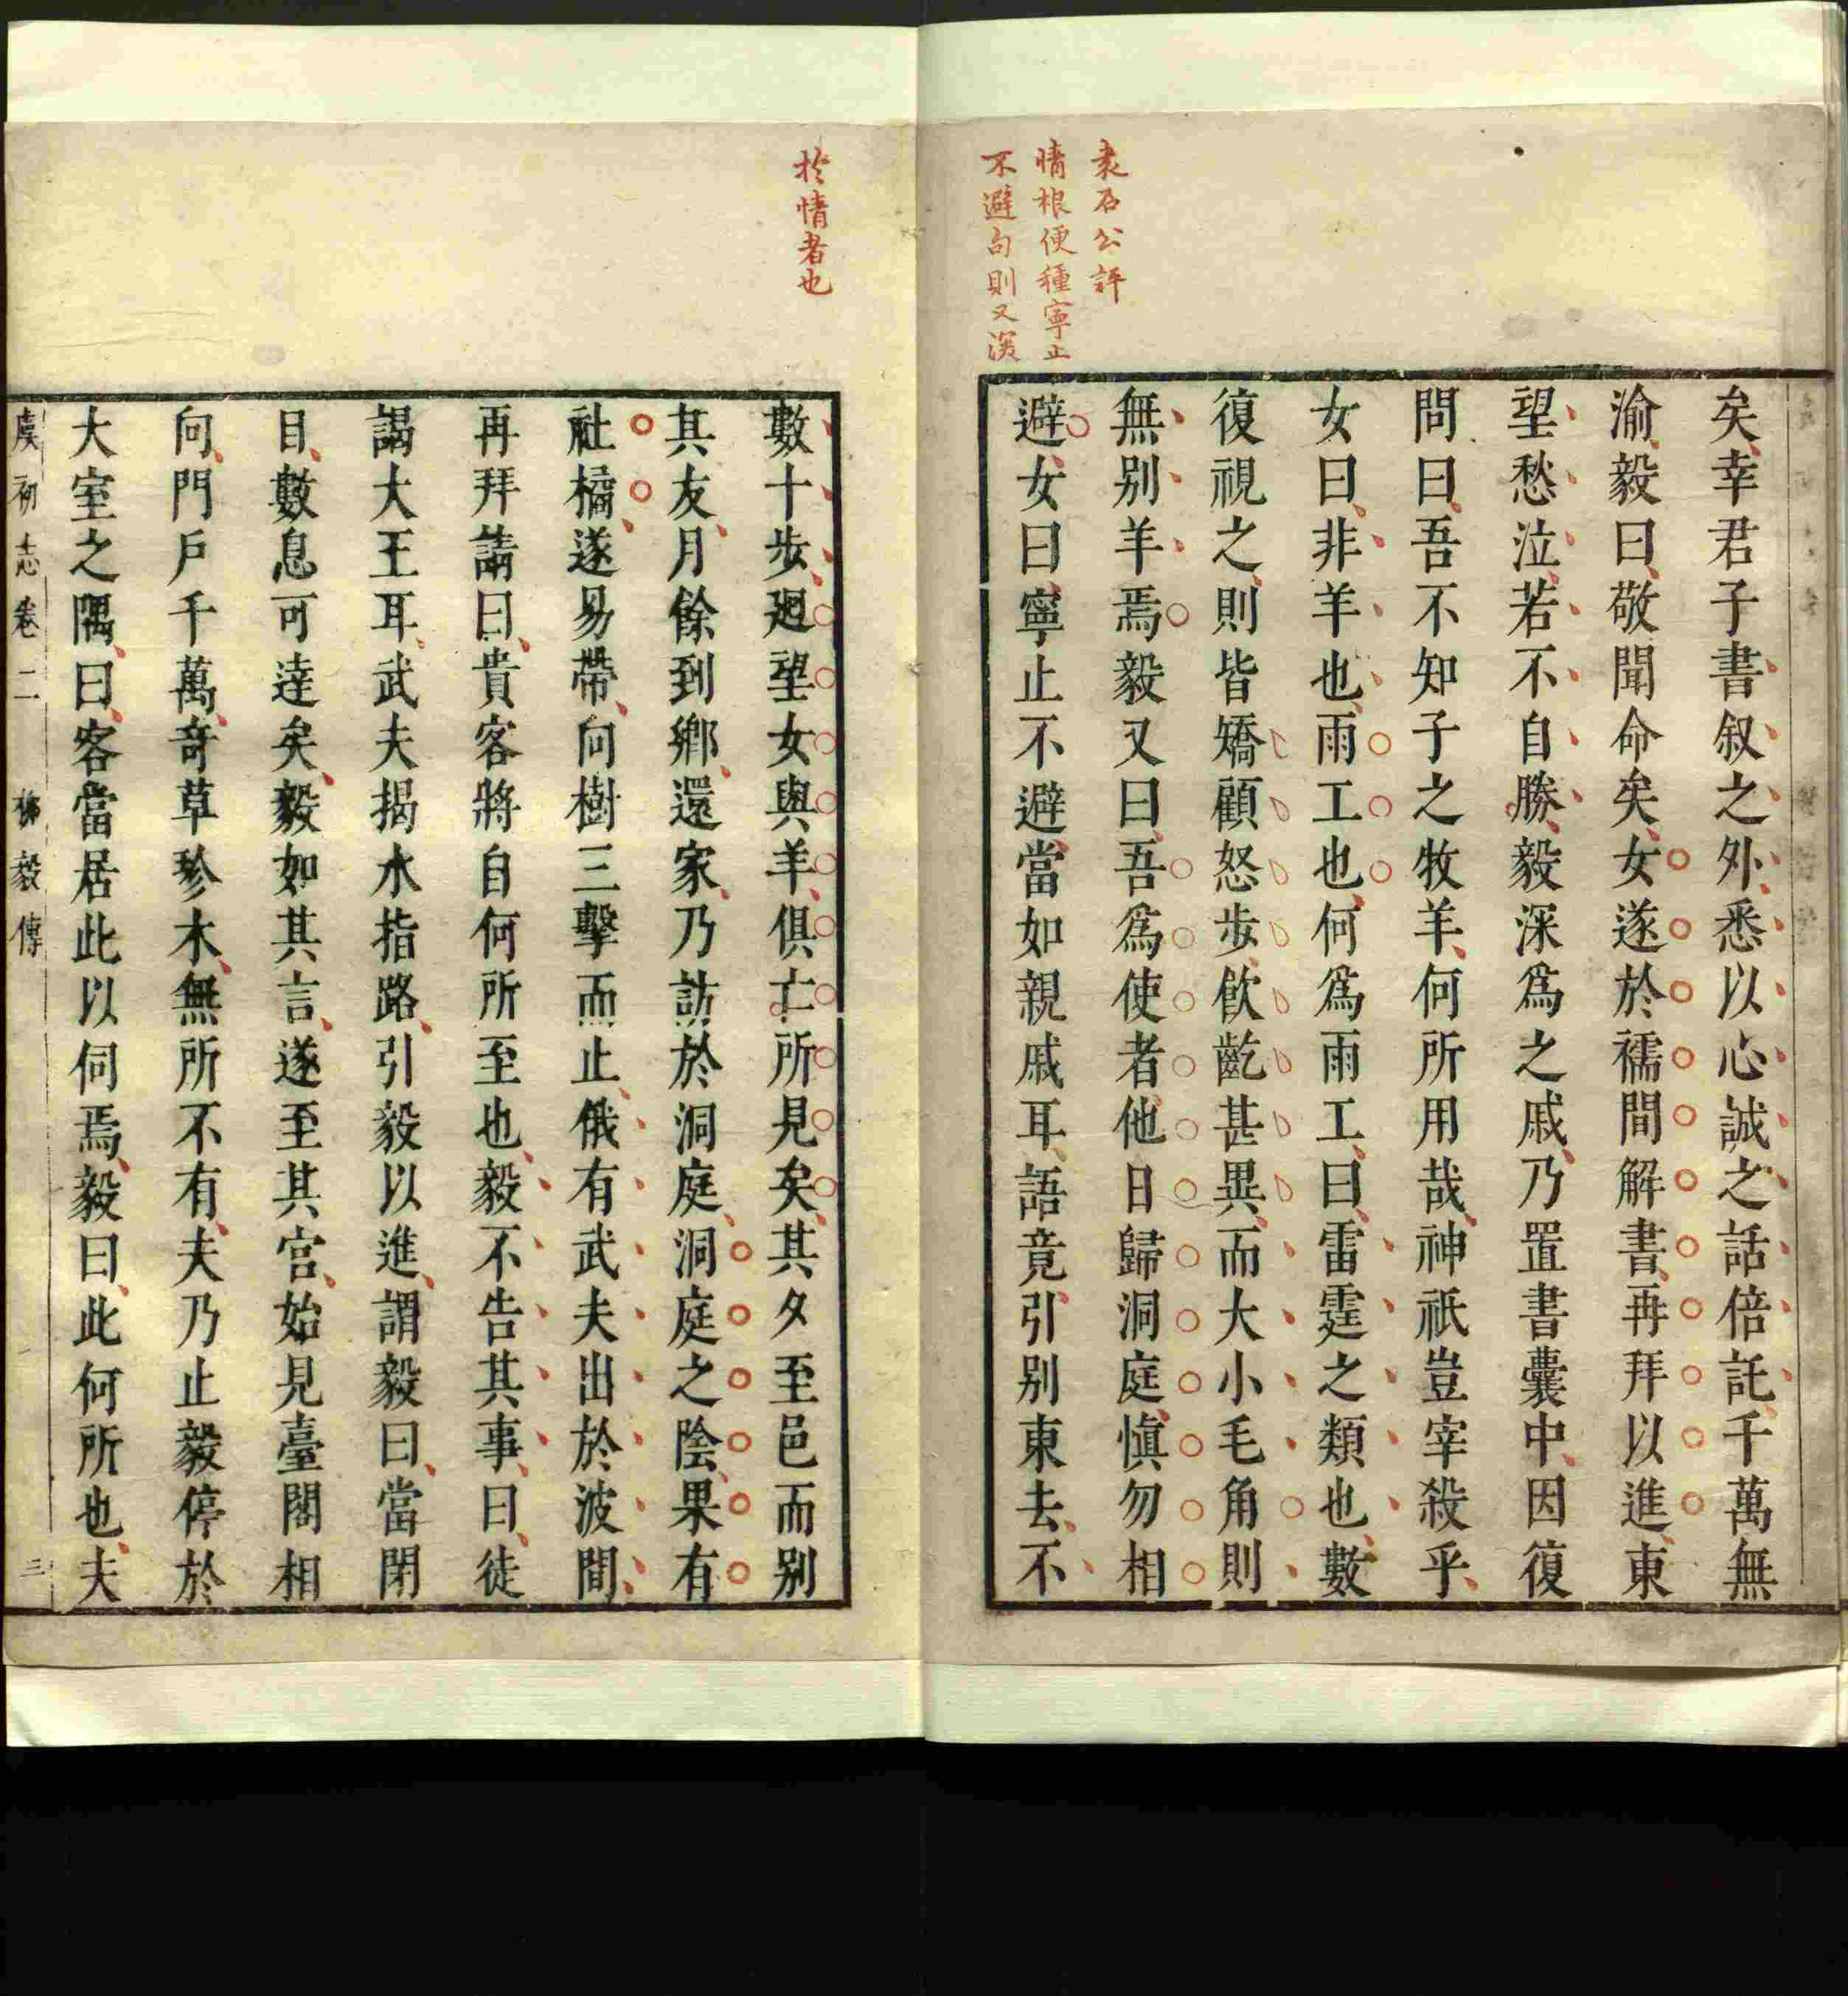 袁石公評
情根便種寧止
不避句則又深
矣幸君子書叙之外悉以心誠之話倍託千萬無
渝毅曰敬聞命矣女遂於襦間解書再拜以進東
望愁泣若不自勝毅深爲之戚乃置書囊中因復
問曰吾不知子之牧羊何所用哉神祇豈宰殺乎
女曰非羊也雨工也何爲雨工曰雷霆之類也數
復視之則皆矯顧怒步飲齕甚異而大小毛角則
無别羊焉毅又曰吾爲使者他日歸洞庭愼勿相
避女曰寧止不避當如親戚耳語竟引别東去不
於情者也
數十步廻望女與羊俱亡所見矣其夕至邑而别
其友月餘到鄉還家乃訪於洞庭洞庭之陰果有
社橘遂易帶向樹三擊而止俄有武夫出於波間
再拜請曰貴客將自何所至也毅不告其事曰徒
謁大王耳武夫揭水指路引毅以進謂毅曰當閉
目數息可達矣毅如其言遂至其宫始見臺閣相
向門戶千萬奇草珍木無所不有夫乃止毅停於
大室之隅曰客當居此以伺焉毅曰此何所也夫
虞初志卷二 柳毅傳 三